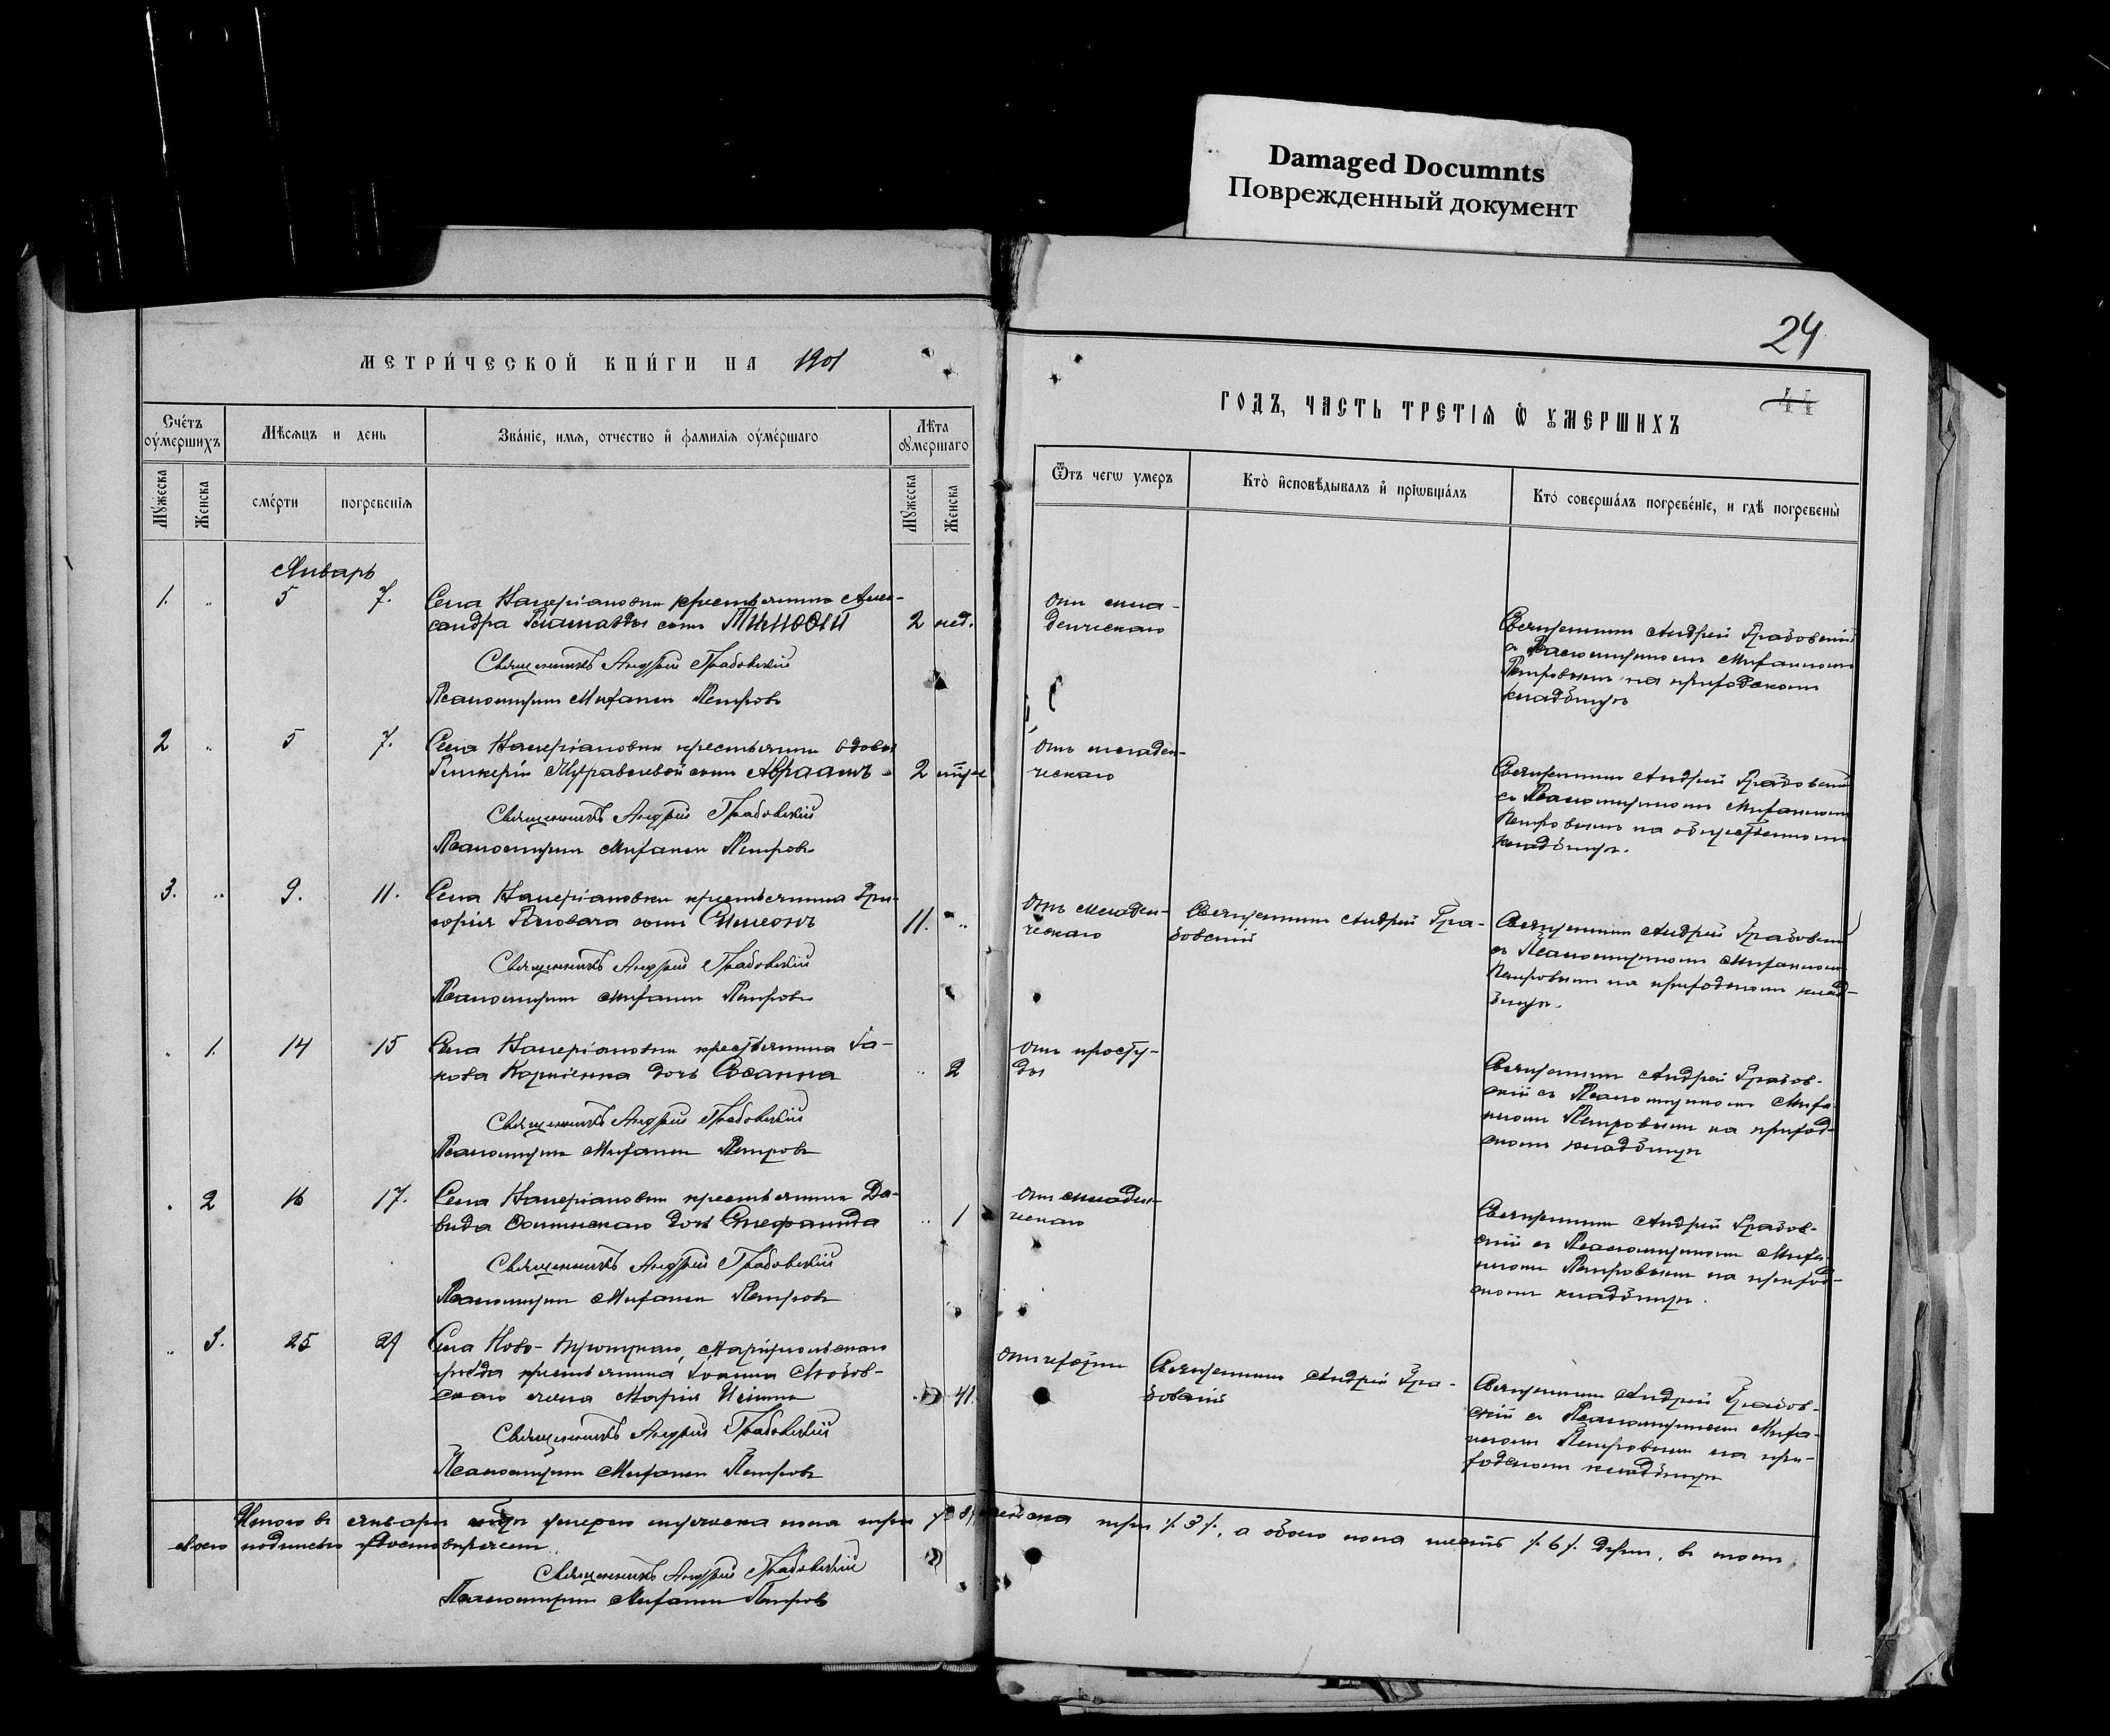 Damaged Documnts
Поврежденный документ
24
44
МЕТРИ́ЧЕСКОЙ КНИ́ГИ НА 1901
ГОДЪ, ЧАСТЬ ТРЕТІѦ Ѡ҆ ᲈУМЕРШИХЪ
Сче́тъ ᲂу҆ме́ршихъ
Мѣсѧцъ и день
Зва́нїе, имѧ, отчество и҆ фамилїѧ ᲂу҆ме́ршаго
Лѣта ᲂу҆мершаго
Мꙋжеска
Женска
сме́рти
погребенїѧ
Мꙋжеска
Женска
Ѿтъ чегѡ умеръ
Кто̀ и҆сповѣдывалъ и҆ прїѡбща́лъ
Кто̀ соверша́лъ погребе́нїе, и гдѣ погребены̀
Январь
1. „ 5 7. Села крестьянина Алек-
сандра сынъ Тимофей 2 нед.
Священникъ Андрей Грабовскій
Псаломщикъ Михаилъ Петровъ
отъ мла-
денческаго
Священникъ Андрей Грабовскій
съ Псаломщикомъ Михаиломъ
Петровымъ на приходскомъ
кладбищѣ
2 „ 5 7. Села крестьянки вдовы
Гликеріи Муравьевой сынъ Авраамъ 2
Священникъ Андрей Грабовскій
Псаломщикъ Михаилъ Петровъ
отъ младен-
ческаго
Священникъ Андрей Грабовскій
съ Псаломщикомъ Михаиломъ
Петровымъ на общественномъ
кладбищѣ.
3. „ 9. 11. Села крестьянина Гри-
горія сынъ Симеонъ 11. „
Священникъ Андрей Грабовскій
Псаломщикъ Михаилъ Петровъ
отъ младен-
ческаго
Священникъ Андрей Гра-
бовскій
Священникъ Андрей Грабовскій
съ Псаломщикомъ Михаиломъ
Петровымъ на приходскомъ клад-
бищѣ.
„ 1. 14 15 Села крестьянина Іа-
кова Корніенка дочь Сосанна „ 2
Священникъ Андрей Грабовскій
Псаломщикъ Михаилъ Петровъ
отъ просту-
ды
Священникъ Андрей Грабов-
скій съ Псаломщикомъ Миха-
иломъ Петровымъ на приход-
скомъ кладбищѣ
„ 2 16 17. Села крестьянина Да-
вида дочь Стефанида „ 1
Священникъ Андрей Грабовскій
Псаломщикъ Михаилъ Петровъ
отъ младен-
ческаго
Священникъ Андрей Грабов-
скій съ Псаломщикомъ Миха-
иломъ Петровымъ на приход-
скомъ кладбищѣ.
„ 3. 25 27 Села Ново- Маріупольскаго
уѣзда крестьянина Іоанна
жена Марія 41.
Священникъ Андрей Грабовскій
Псаломщикъ Михаилъ Петровъ
Священникъ Андрей Гра-
бовскій
Священникъ Андрей Грабов-
скій съ Псаломщикомъ Миха-
иломъ Петровымъ на при-
ходскомъ кладбищѣ
Итого въ январѣ умерло мужеска пола три женска три /.3/., а обоего пола шесть /.6/. душъ, въ томъ
своею подписью удостовѣряемъ
Священникъ Андрей Грабовскій
Псаломщикъ Михаилъ Петровъ